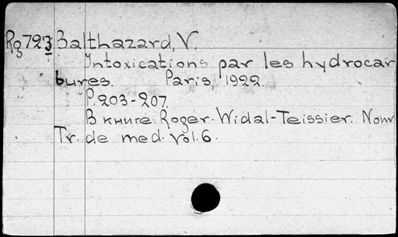 Rg723 Balthazard, V.
Intoxications par les hydrocar
bures. Paris, 1922.
P. 203-207.
В книге: Roger-Widal-Teissier. Nouv
Tr. de med. vol. 6.